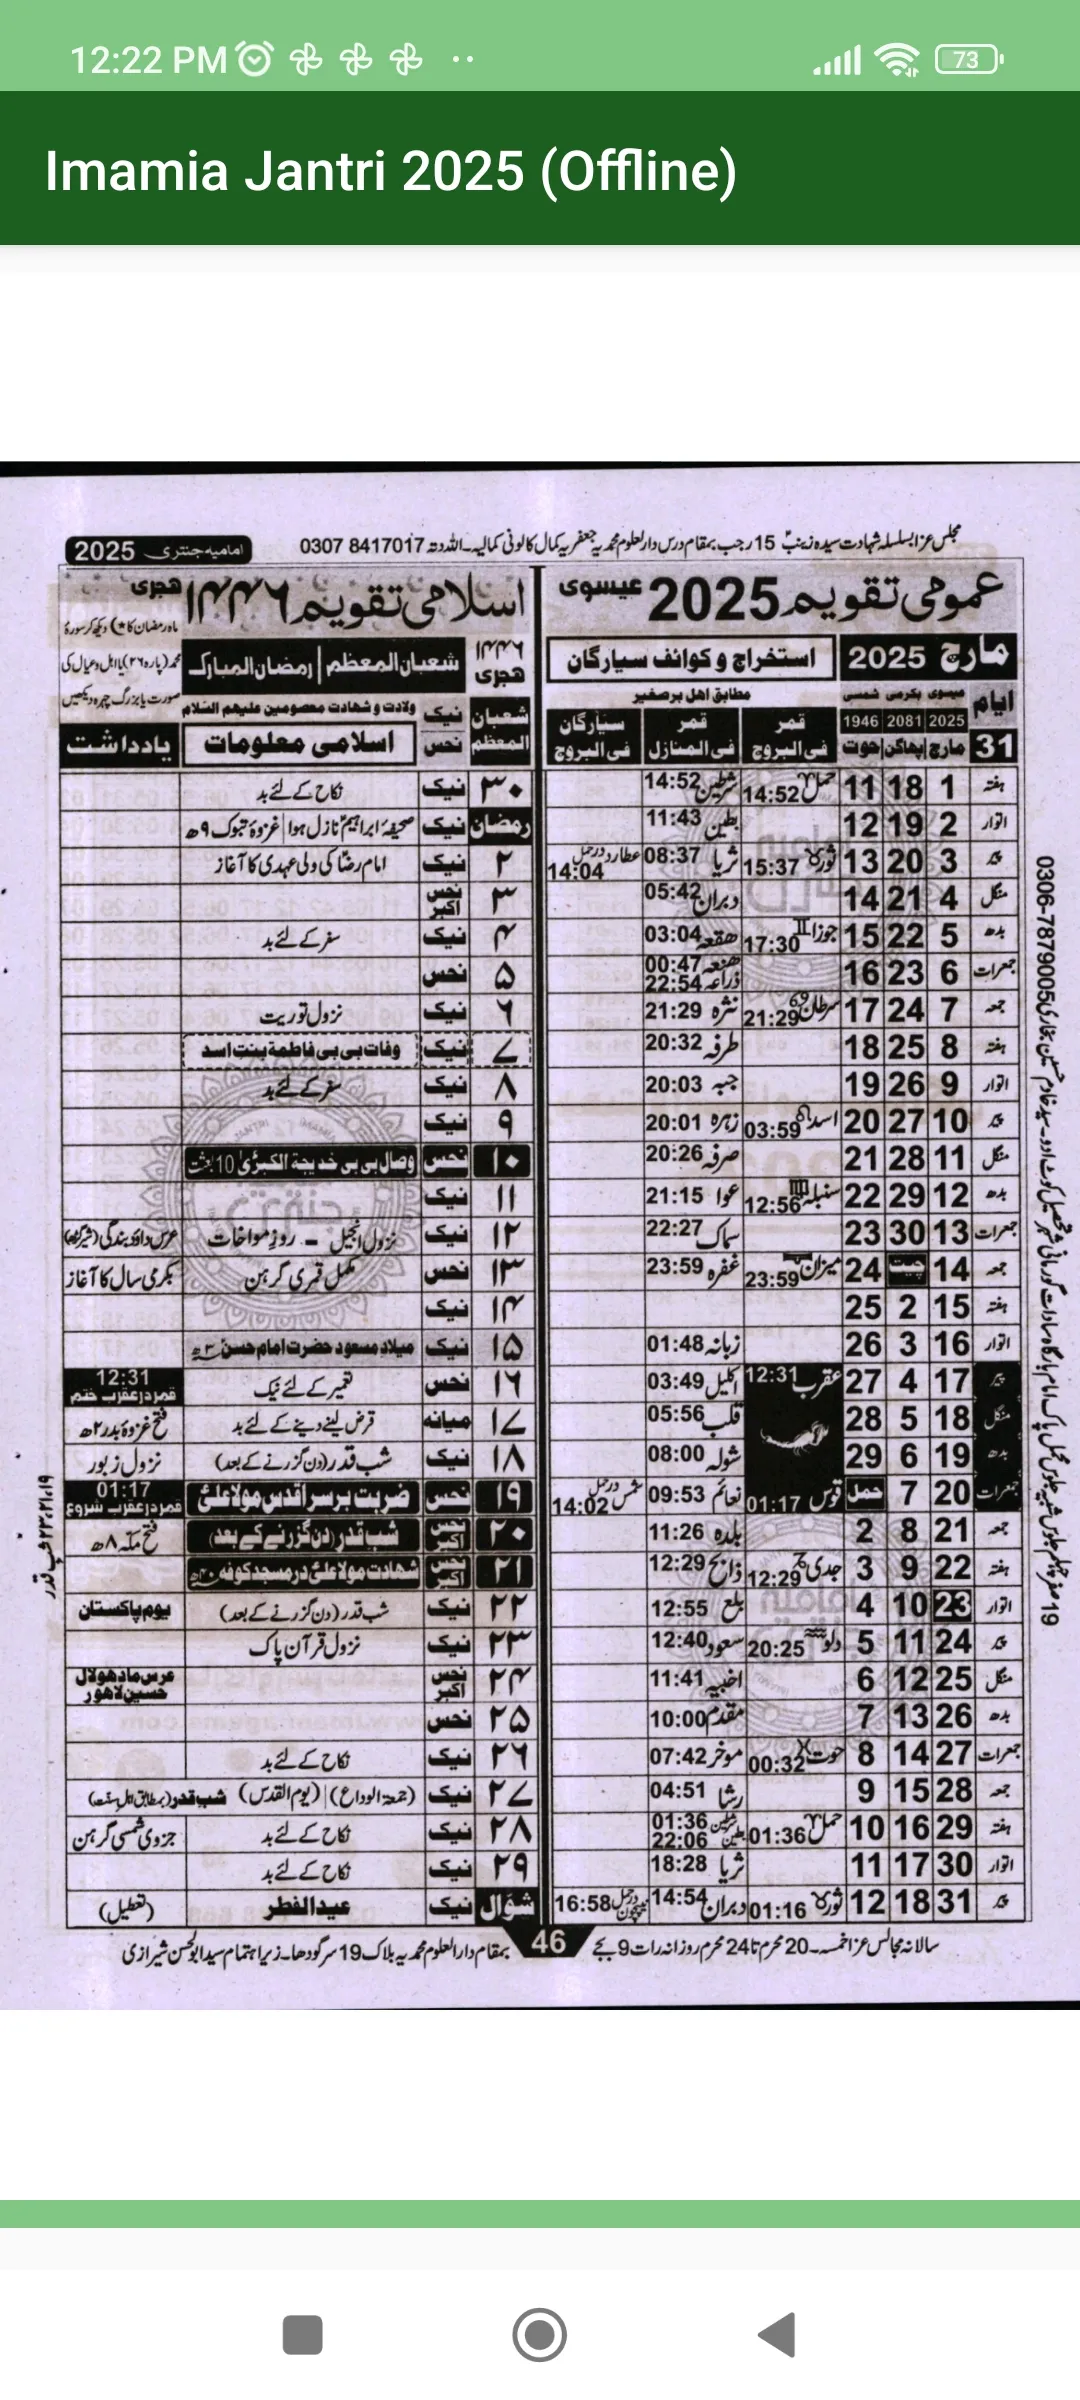 12:22 PM
73
Imamia Jantri 2025 (Offline)
مجلس عزا بسلسلہ شہادت سیدہ زینبؑ 15 رجب بمقام درس دارالعلوم محمدیہ جعفریہ کمال کالونی کمالیہ۔ اللہ دتہ 0307 8417017
امامیہ جنتری 2025
عمومی تقویم 2025 عیسوی
اسلامی تقویم ۱۴۴۶ ہجری
مارچ 2025
استخراج و کوائف سیارگان
۱۴۴۶ ہجری
شعبان المعظم | رمضان المبارک
ماہ رمضان کا دیکھ کر سورۂ
محمدؐ (پارہ ۲۶) یا اہل و عیال کی
صورت یا بزرگ چہرہ دیکھیں
مطابق اہل برصغیر
ولادت و شہادت معصومین علیہم السّلام
ایام 31
عیسوی 2025 مارچ
بکرمی 2081 پھاگن
شمسی 1946 حوت
قمر فی البروج
قمر فی المنازل
سیّارگان فی البروج
شعبان المعظم
نیک نحس
اسلامی معلومات
یادداشت
ہفتہ 1 18 11 حمل 14:52 شرطین 14:52 ۳۰ نیک نکاح کے لئے بد
اتوار 2 19 12 بطین 11:43 رمضان نیک صحیفۂ ابراہیمؑ نازل ہوا | غزوۂ تبوک ۹ھ
پیر 3 20 13 ثور 15:37 ثریا 08:37 عطارد در حمل 14:04 ۲ نیک امام رضاؑ کی ولی عہدی کا آغاز
منگل 4 21 14 دبران 05:42 ۳ نحس اکبر
بدھ 5 22 15 جوزا 17:30 ہقعہ 03:04 ۴ نیک سفر کے لئے بد
جمعرات 6 23 16 ہنعہ 00:47 ذراعہ 22:54 ۵ نحس
جمعہ 7 24 17 سرطان 21:29 نثرہ 21:29 ۶ نیک نزول توریت
ہفتہ 8 25 18 طرفہ 20:32 ۷ نیک وفات بی بی فاطمۃ بنتِ اسد
اتوار 9 26 19 جبہ 20:03 ۸ نیک سفر کے لئے بد
پیر 10 27 20 اسد 03:59 زہرہ 20:01 ۹ نیک
منگل 11 28 21 صرفہ 20:26 ۱۰ نحس وصال بی بی خدیجۃ الکبریٰ 10 بعثت
بدھ 12 29 22 سنبلہ 12:56 عوا 21:15 ۱۱ نیک
جمعرات 13 30 23 سماک 22:27 ۱۲ نیک نزول انجیل – روز مواخات عرس داؤد بندگی (شیرگڑھ)
جمعہ 14 چیت 24 میزان 23:59 غفرہ 23:59 ۱۳ نحس مکمل قمری گرہن بکرمی سال کا آغاز
ہفتہ 15 2 25 ۱۴ نیک
اتوار 16 3 26 زبانہ 01:48 ۱۵ نیک میلاد مسعود حضرت امام حسنؑ ۳ھ
پیر 17 4 27 عقرب 12:31 اکلیل 03:49 ۱۶ نحس تعمیر کے لئے نیک 12:31 قمر در عقرب ختم
منگل 18 5 28 قلب 05:56 ۱۷ میانہ قرض لینے دینے کے لئے بد فتح غزوۂ بدر ۲ھ
بدھ 19 6 29 شولہ 08:00 ۱۸ نیک شب قدر (دن گزرنے کے بعد) نزول زبور
جمعرات 20 7 حمل قوس 01:17 نعائم 09:53 شمس در حمل 14:02 ۱۹ نحس ضربت بر سر اقدس مولا علیؑ 01:17 قمر در عقرب شروع
جمعہ 21 8 2 بلدہ 11:26 ۲۰ نحس اکبر شب قدر (دن گزرنے کے بعد) فتح مکہ ۸ھ
ہفتہ 22 9 3 جدی 12:29 ذابح 12:29 ۲۱ نحس اکبر شہادت مولا علیؑ در مسجد کوفہ ۴۰ھ
اتوار 23 10 4 بلع 12:55 ۲۲ نیک شب قدر (دن گزرنے کے بعد) یوم پاکستان
پیر 24 11 5 دلو 20:25 سعود 12:40 ۲۳ نیک نزول قرآن پاک
منگل 25 12 6 اخبیہ 11:41 ۲۴ نحس اکبر عرس مادھو لال حسین لاھور
بدھ 26 13 7 مقدم 10:00 ۲۵ نحس
جمعرات 27 14 8 حوت 00:32 موخر 07:42 ۲۶ نیک نکاح کے لئے بد
جمعہ 28 15 9 رشا 04:51 ۲۷ نیک (جمعۃ الوداع) | (یوم القدس) شب قدر (بمطابق اہل سنت)
ہفتہ 29 16 10 حمل 01:36 شرطین 01:36 بطین 22:06 ۲۸ نیک نکاح کے لئے بد جزوی شمسی گرہن
اتوار 30 17 11 ثریا 18:28 ۲۹ نیک نکاح کے لئے بد
پیر 31 18 12 ثور 01:16 دبران 14:54 نیپچون در حمل 16:58 شوّال نیک عید الفطر (تعطیل)
سالانہ مجالس عزا خمسہ۔ 20 محرم تا 24 محرم روزانہ رات 9 بجے
46
بمقام دارالعلوم محمدیہ بلاک 19 سرگودھا۔ زیر اہتمام سید ابوالحسن شیرازی
0306-7879005